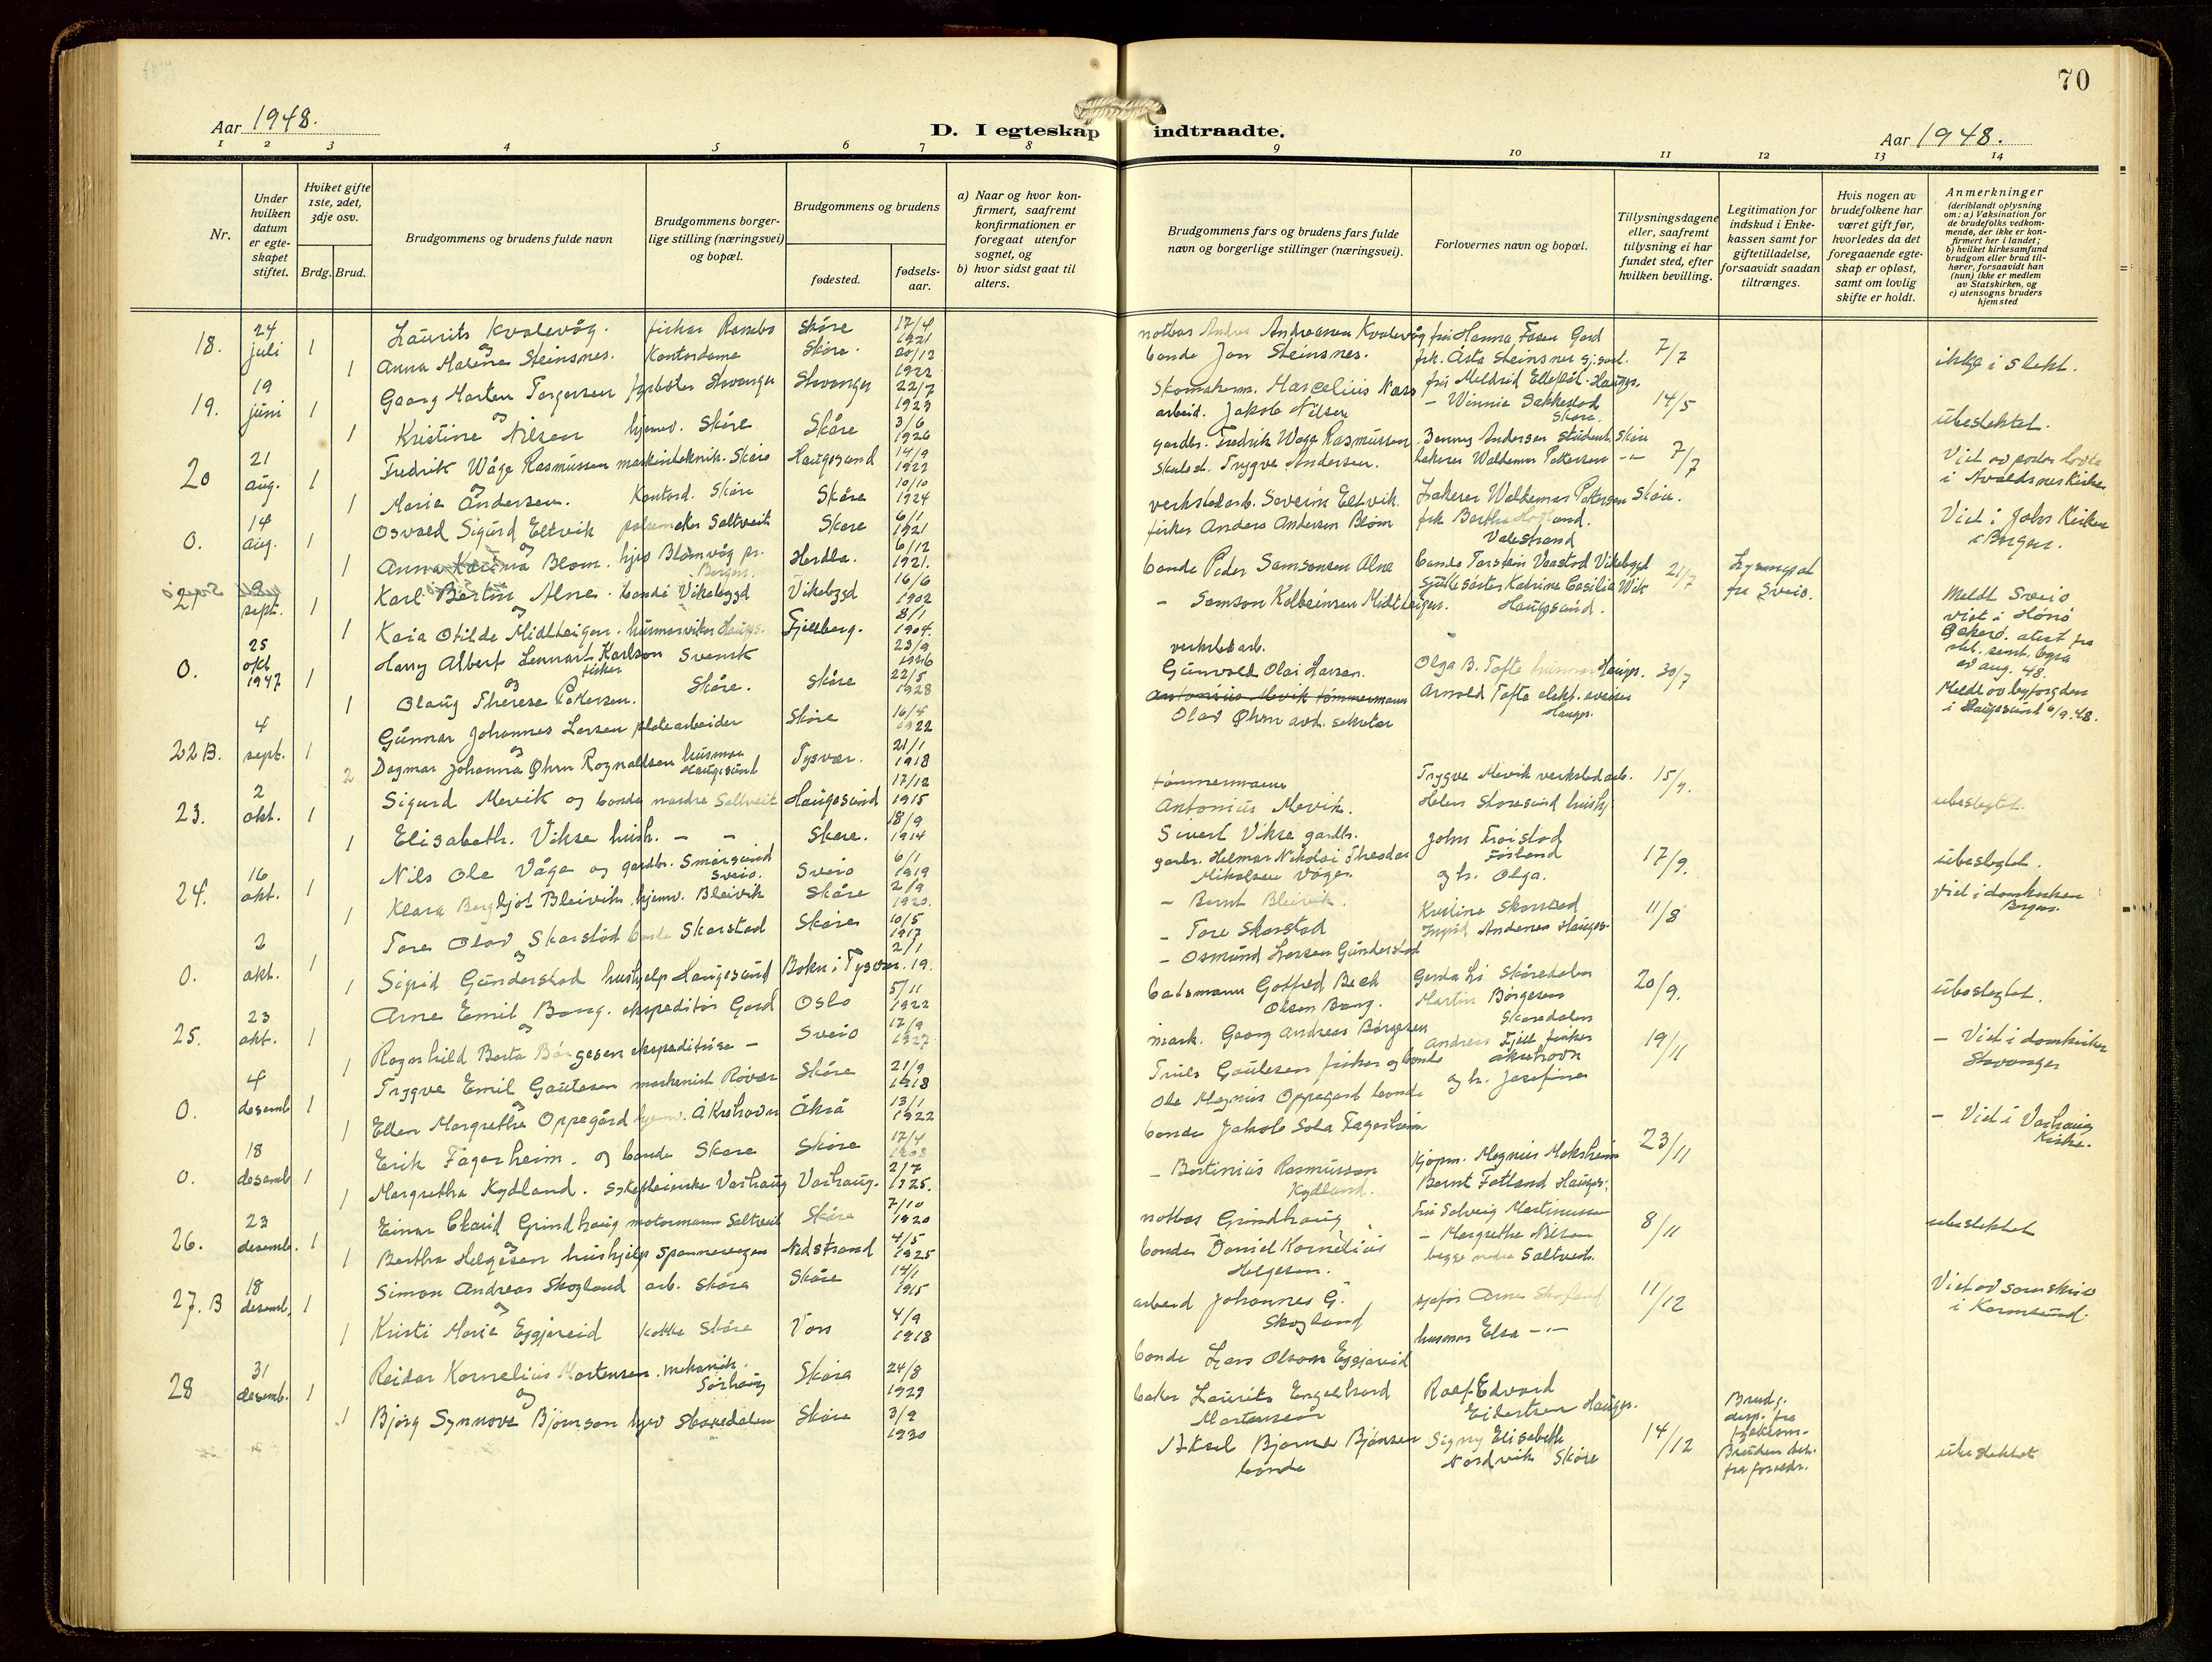 70
Aar 1948.
D. I egteskap indtraadte.
Aar 1948.
1 2 3 4 5 6 7 8 9 10 11 12 13 14
Nr.
Under hvilken datum er egteskapet stiftet.
Hviket gifte 1ste, 2det, 3dje osv.
Brdg. Brud.
Brudgommens og brudens fulde navn
Brudgommens borgerlige stilling (næringsvei) og bopæl.
Brudgommens og brudens
fødested.
fødselsaar.
a) Naar og hvor konfirmert, saafremt konfirmationen er foregaat utenfor sognet, og
b) hvor sidst gaat til alters.
Brudgommens fars og brudens fars fulde navn og borgerlige stillinger (næringsvei).
Forlovernes navn og bopæl.
Tillysningsdagene eller, saafremt tillysning ei har fundet sted, efter hvilken bevilling.
Legitimation for indskud i Enkekassen samt for giftetilladelse, forsaavidt saadan tiltrænges.
Hvis nogen av brudefolkene har været gift før, hvorledes da det foregaaende egteskap er opløst, samt om lovlig skifte er holdt.
Anmerkninger
(deriblandt oplysning om: a) Vaksination for de brudefolks vedkommende, der ikke er konfirmert her i landet;
b) hvilket kirkesamfund brudgom eller brud tilhører, forsaavidt han (hun) ikke er medlem av Statskirken, og
c) utensogns bruders hjemsted
18. 24 juli 1 Laurits Kvalevåg. fisker Skåre 17/4 1921
og
1 Anna Malene Steinsnes. Kontordame Skåre. 20/12 1922
19. 19 juni 1 Georg Morten Torgersen Stavanger Stavanger 22/7 1923
og
1 Kristine Nilsen hjemv. Skåre Skåre 3/6 1926
20 21 aug. 1 Fredrik Våge Rasmussen maskinteknik. Skåre Haugesund 14/9 1922
og
1 Marie Andersen. Kontord. Skåre Skåre 10/10 1924
0. 14 aug. 1 Osvald Sigurd Eltvik Saltveit Skåre 6/1 1921
og
1 Anna Karina Blom. Blomvåg pr. Bergen. Herdla. 6/12 1921.
21 sept. 1 Karl Bertin Alne. bonde Vikebygd Vikebygd 16/6 1902
og
1 Kaia Otilde Midtteigen. Haugs. Fjellberg. 8/1 1904.
0. 25 okt 1947 1 Harry Albert Lennart Karlson fisker Svensk 23/9
og
1 Olaug Therese Pettersen. Skåre. Skåre 22/5 1928
22B. 4 sept. 1 Gunnar Johannes Larsen platearbeider Skåre 16/4 1922
og
2 Dagmar Johanna Øhrn Rognaldsen husmor Haugesund Tysvær. 21/1 1918
23. 2 okt. 1 Sigurd Mevik og bonde nordre Saltveit Haugesund 17/12 1915
1 Elisabeth Vikse hush. - - Skåre. 18/9 1914
24. 16 okt. 1 Nils Ole Våga og gardbr. Smørsund Sveio. Sveio 6/1 1919
1 Klara Bergljot Bleivik hjemv. Bleivik Skåre 2/9 1920.
0. 2 okt. 1 Tore Olav Skorstad bonde Skorstad Skåre 10/5 1917
1 Sigrid Gunderstad hushjelp Haugesund Bokn i Tysvær. 2/1 19.
25. 23 okt. 1 Arne Emil Bang. ekspeditør Gard Oslo 5/11 1922
og
1 Ragnhild Berta Børgesen ekspeditrise - Sveio 17/9 1927
0. 4 desemb 1 Trygve Emil Gautesen maskinist Røvær Skåre 21/9 1918
og
1 Ellen Margrethe Oppegård hjemv. Åkrehavn Åkra 13/1 1922
0. 18 desemb 1 Erik Fagerheim. og bonde Skåre Skåre 17/4
1 Margretha Kydland. sykepleierske Varhaug Varhaug. 2/7 1925.
26. 23 desemb. 1 Einar Grindhaug motormann Saltveit Skåre 7/10 1920
og
1 Bertha Helgesen hushjelp Spannavegen Nedstrand 4/5 1925
27. B 18 desemb. 1 Simon Andreas Skogland arb. Skåre Skåre 14/1 1915
og
1 Kristi Marie Eggjareid kokke Skåre Voss 4/9 1918
28 31 desemb. 1 Reidar Kornelius Mortensen. mekanik. Sørhaug Skåre 24/8 1929
og
1 Bjørg Synnøve Bjørnson Skåredalen Skåre 3/9 1930
notbas Andreassen Kvalevåg fru Hanna Gard
bonde Jon Steinsnes. frk. Åsta Steinsnes 7/7 ikkje i slekt.
Skomakerm. Marcelius Næss
arbeid. Jakob Nilsen - Winnie Sakkestad Skåre 14/5 ubeslektet.
gardbr. Fredrik Wåge Rasmussen Andersen student Skåre
Trygve Andersen. Waldemar Pettersen -"- 7/7 Viet av i Avaldsnes Kirke
verkstedarb. Severin Eltvik Waldemar Pettersen Skåre.
fisker Anders Andersen Blom frk Berthe Valestrand Viet i Joh. Kirken i Bergen.
bonde Peder Samsonsen Alne bonde Torstein Vaastad Vikebygd 21/7 Lysningsat. fra Sveio.
- Samson Kolbeinsen Midtteigen. Katrine Cecilie Wik Haugesund. Meldt Sveio
viet i
verkstedarb.
Gunvald Olai Larsen. Olga B. Tofte husmor Haugs. 30/7
Antonius Mevik tømmermann Arnold Tofte elekt. sveiser Haugs.
Olav Øhrn avd. sekretær Meldt av byfogden i Haugesund 6/9.48.
tømmermann
Antonius Mevik. Trygve Mevik verkstedarb. 15/9.
Helen Storesund hush. ubeslegtet.
Sivert Vikse gardbr.
garbr. Helmar Nikolai Theodor Mikalsen Våge. John Frøistad og h. Olga. 17/9. ubeslegtet.
- Bernt Bleivik. Viet i domkirken Bergen.
- Tore Skorstad Kristine Skorstad 11/8
- Osmund Larsen Gunderstad Ingrid Andenes Haugs.
batsmann Gotfred Beck Olsen Bang. Gerda Li Skåredalen 20/9. ubeslegtet.
Martin Børgesen Skåredalen
mask. Georg Andreas Børgesen
Truls Gautesen fisker og bonde Andreas fisker Åkrehavn 19/11 - Viet i domkirken Stavanger
Ole Magnus Oppegård bonde og h. Josefine
bonde Jakob Sela Fagerheim - Viet i Varhaug Kirke.
- Bertinius Rasmusson Kydland. Kjøpm. Magnus 23/11
Bernt Fatland Haugs.
notbas Grindhaug fru Solveig Martinussen 8/11 ubeslektet
bonde Daniel Kornelius Helgesen. - Margrethe Nilsen
begge nedre Saltveit.
arbeid Johannes G. Skogland sjåfør Arne Skogland 11/12 Viet av sorenskriv i Karmsund.
bonde Lars Olson Eggjareid husmor Elsa -"-
baker Laurits Engelhard Mortensen Rolf Edvard Eilertsen Haugs. Brudg.
Aksel Bjarne Bjørnsen bonde Signy Elisabeth Nordvik Skåre 14/12 Bruden fra ubeslektet